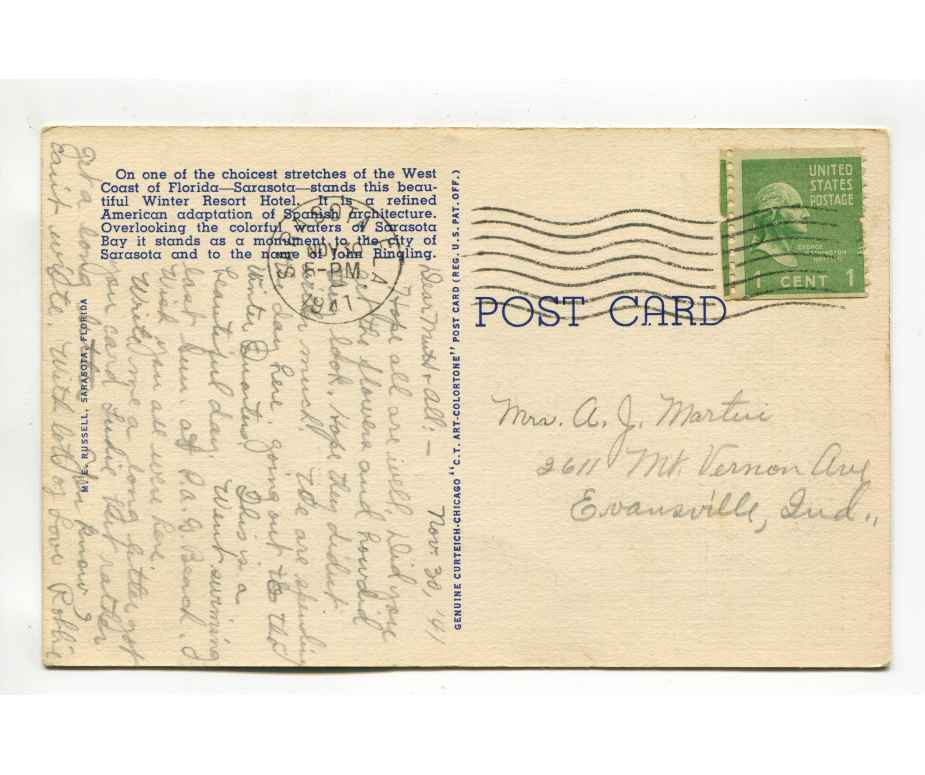 On one of the choicest stretches of the West
Coast of Florida—Sarasota—stands this beau-
tiful Winter Resort Hotel. It is a refined
American adaptation of Spanish architecture.
Overlooking the colorful waters of Sarasota
Bay it stands as a monument to the city of
Sarasota and to the name of John Ringling.
SARASOTA FLA
NOV 30
5-PM
1941
M. E. RUSSELL, SARASOTA, FLORIDA
GENUINE CURTEICH-CHICAGO "C.T. ART-COLORTONE" POST CARD (REG. U. S. PAT. OFF.)
POST CARD
UNITED
STATES
POSTAGE
GEORGE
WASHINGTON
1 CENT 1
Nov. 30, '41
Dear Mutt & All:—
Hope all are well, Did you
get the flowers and how did
they look, hope they didn't
much. We are spending
day here going out to the
Winter Quarters. This is a
beautiful day. Went swimming
last
Wish you all were here.
Write me a long letter got
you card Judie but rather
get a long
can't write. With lots of Love
Mrs. A. J. Martin
2611 Mt. Vernon Ave
Evansville, Ind.,